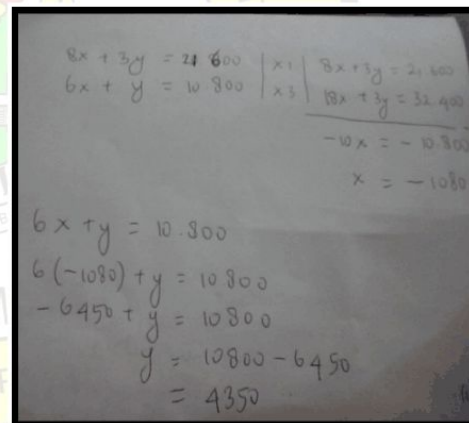 8x + 3y = 21 600 | x1 | 8x + 3y = 21.600
6x + y = 10.800 | x3 | 18x + 3y = 32.400
-10x = - 10.800
x = - 1080
6x + y = 10.800
6(-1080) + y = 10800
- 6450 + y = 10800
y = 10800 - 6450
= 4350